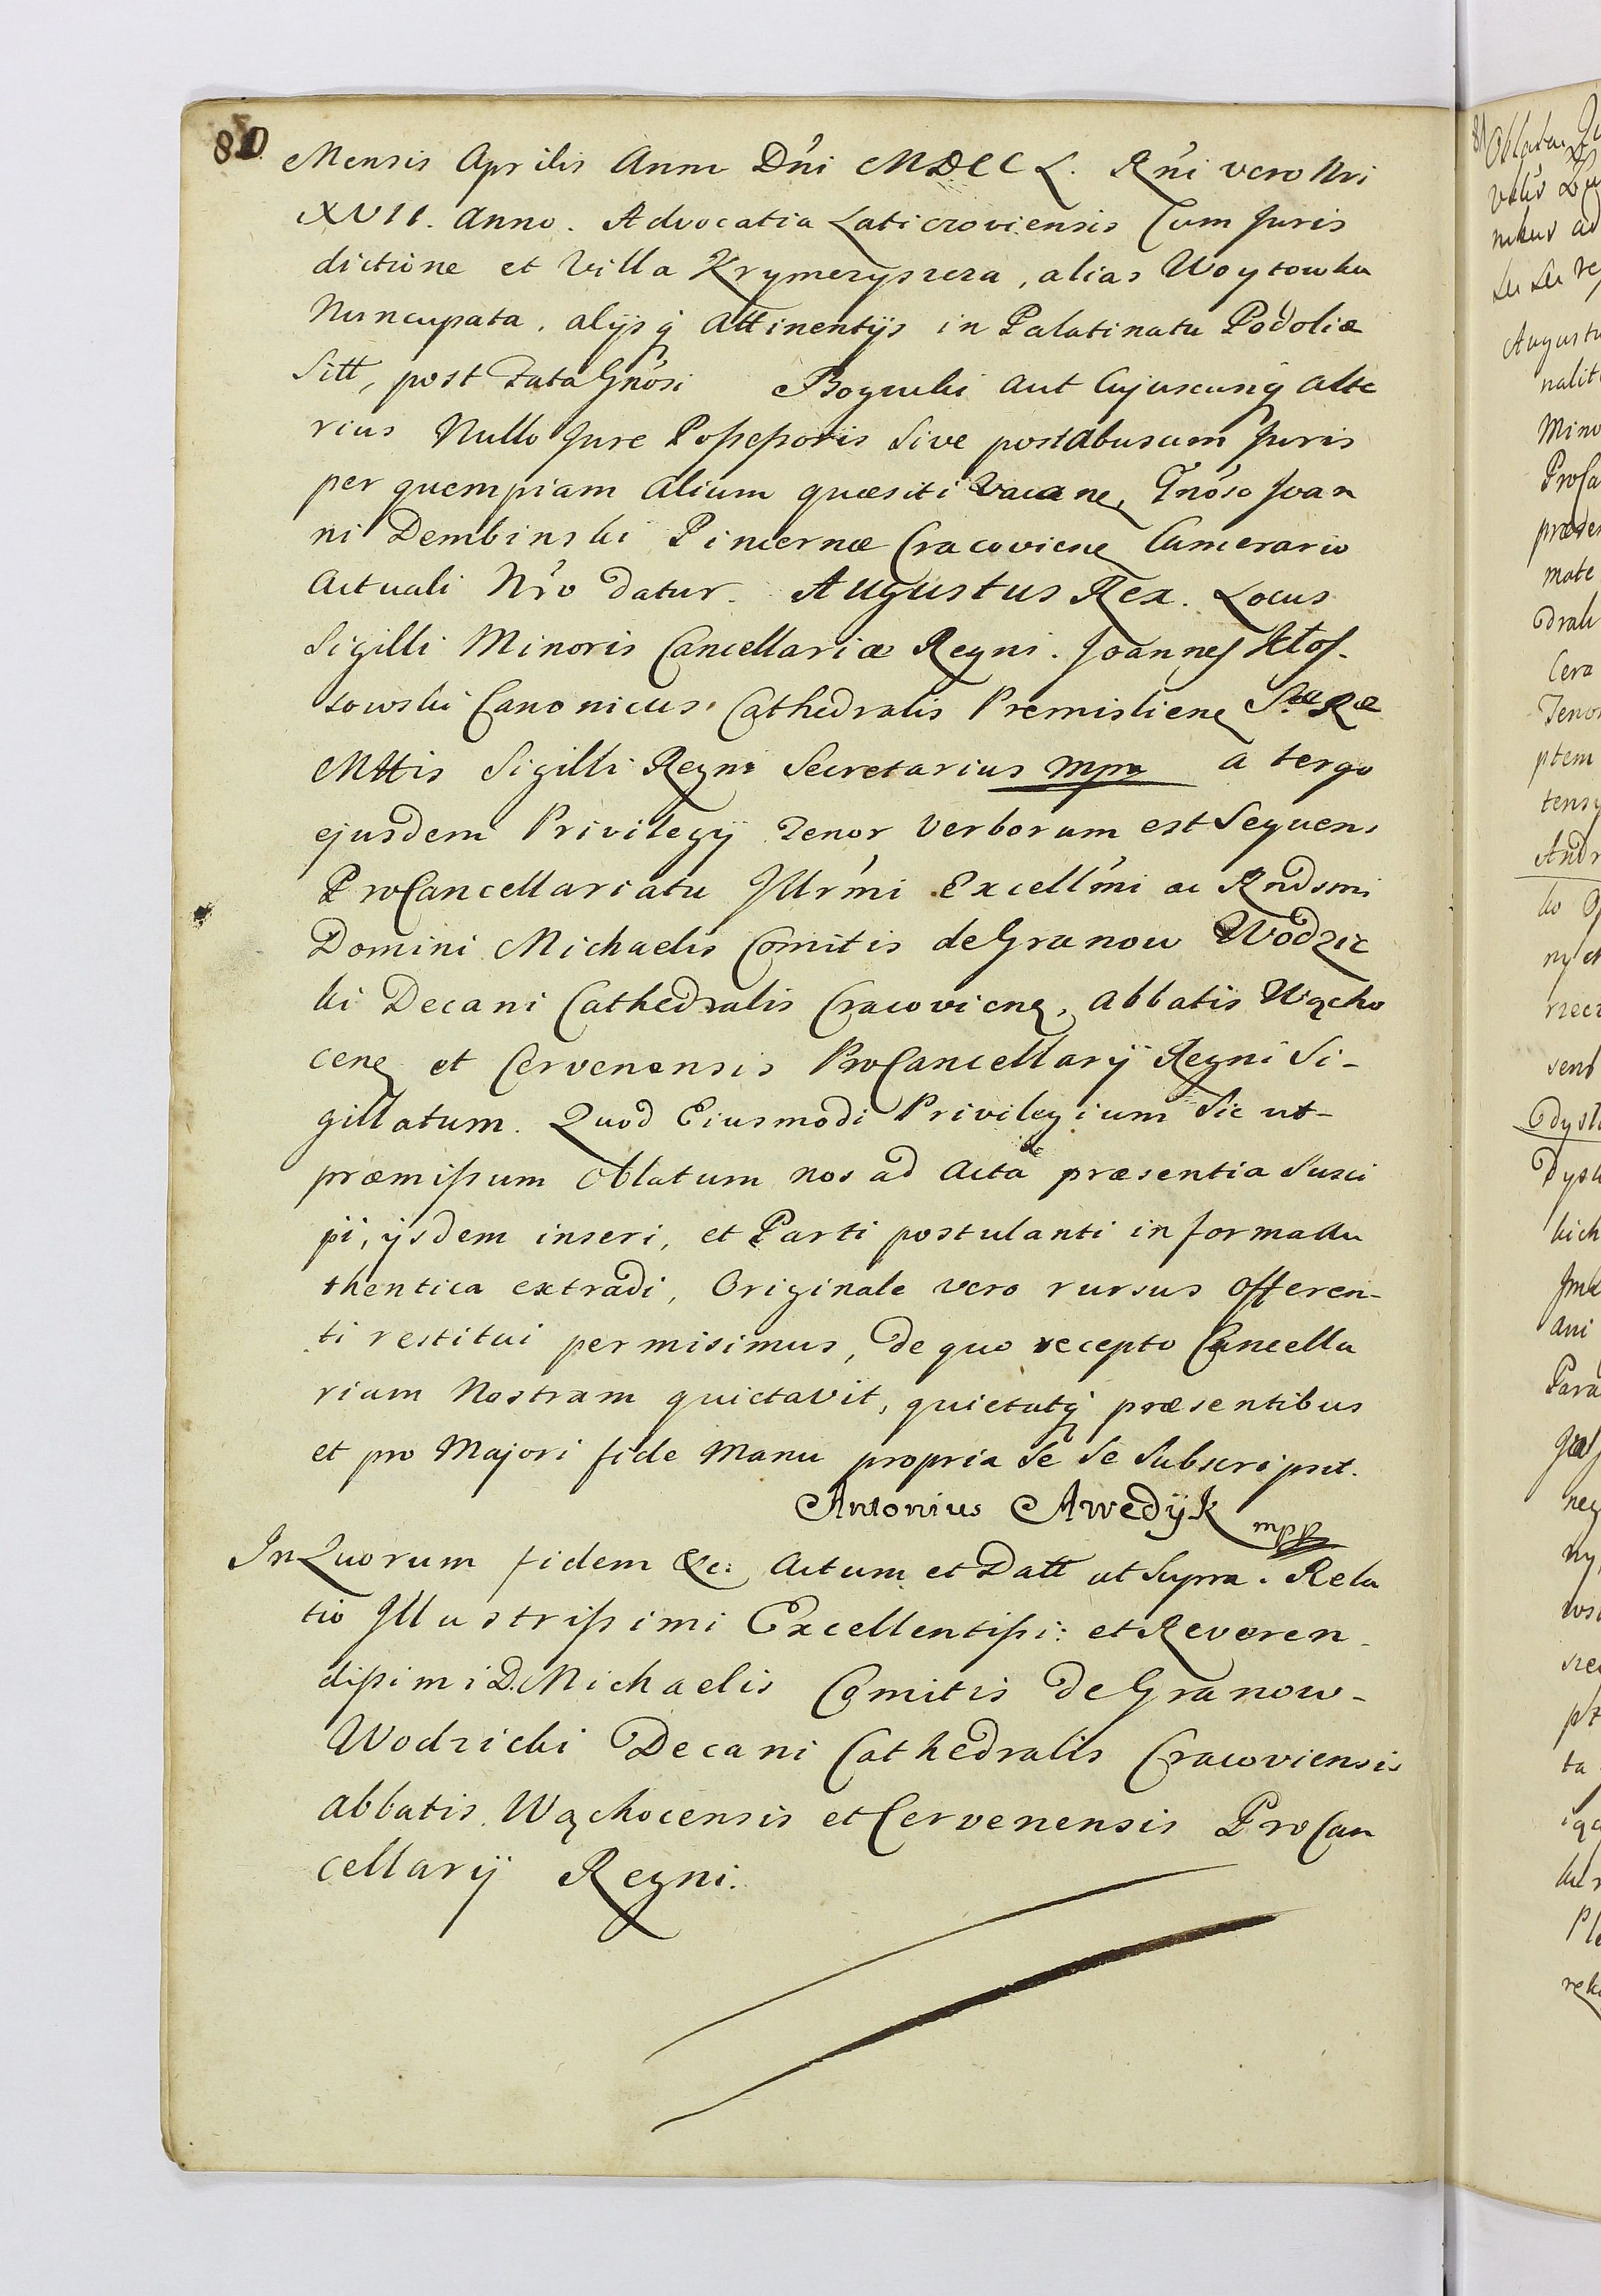 80
Mensis Aprilis Anno Dńi MDCCL. Rńi vero Nri
XVII. Anno. Advocatia Laticzoviensis Cum Juris
dictione et Villa Krymerzyszcza, alias Woytowka
Nuncupata, alijsq́ Attinentijs in Palatinatu Podoliæ
Sitt, post Fata Gńosi Bogucki aut Cujuscunq́ alte
rius Nullo Jure Possessoris Sive post Abusum Juris
per quempiam Alium quæsiti Vacanę, Gńoso Joan
ni Dembinski Pincernæ Cracovienę Camerario
Actuali Nŕo datur. Augustus Rex. Locus
Sigilli Minoris Cancellariæ Regni. Joannes Kłos-
sowski Canonicus Cathedralis Premislienę Stæ Ræ
Mttis Sigilli Regni Secretarius mpa a tergo
ejusdem Privilegij Tenor Verborum est Sequens
ProCancellariatu Illrḿi Excellḿi ac Rndsmi
Domini Michaelis Comitis de Granow Wodzic
ki Decani Cathedralis Cracovienę, Abbatis Wącho
cenę et Cervenensis ProCancellarij Regni Si-
gillatum. Quod Eiusmodi Privilegium Sic ut-
præmissum Oblatum nos ad Acta præsentia Susci
pi, ijsdem inseri, et Parti postulanti in forma Au
thentica extradi, Originale vero rursus Offeren-
ti restitui permisimus, de quo recepto Cancella
riam Nostram quietavit, quietatq́ præsentibus
et pro Majori fide Manu propria Se Se Subscripsit.
Antonius Awedyk mpp
In Quorum fidem &c: Actum et Datt ut Supra. Rela
tio Illustrissimi Excellentissi: et Reveren-
dissimi D. Michaelis Comitis de Granow-
Wodzicki Decani Cathedralis Cracoviensis
Abbatis Wąchocensis et Cervenensis ProCan
cellarij Regni.